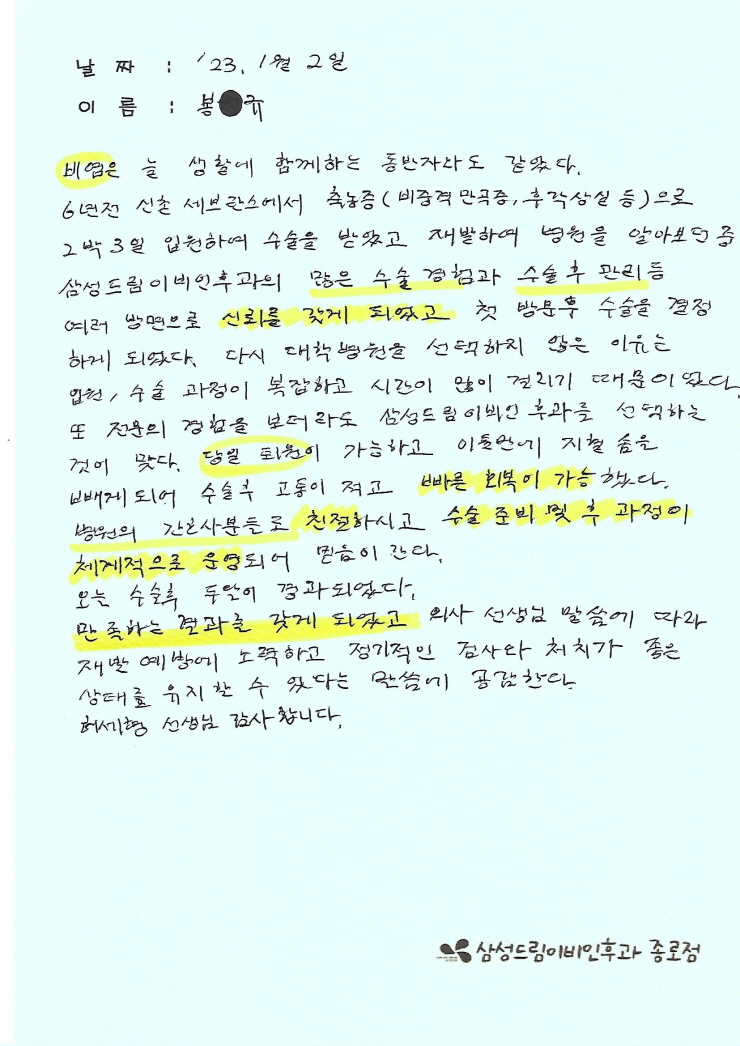 날 짜 : '23. 1월 2일
이 름 : 봉 규
비염은 늘 생활에 함께하는 동반자라도 같았다.
6년전 신촌 세브란스에서 축농증(비중격만곡증, 후각상실 등)으로
2박 3일 입원하여 수술을 받았고 재발하여 병원을 알아보던 중
삼성드림이비인후과의 많은 수술 경험과 수술 후 관리 등
여러 방면으로 신뢰를 갖게 되었고 첫 방문후 수술을 결정
하게 되었다. 다시 대학병원을 선택하지 않은 이유는
입원, 수술 과정이 복잡하고 시간이 많이 걸리기 때문이었다.
또 전문의 경험을 보더라도 삼성드림이비인후과를 선택하는
것이 맞다. 당일 퇴원이 가능하고 이틀만에 지혈 솜을
빼게되어 수술후 고통이 적고 빠른 회복이 가능했다.
병원의 간호사분들도 친절하시고 수술 준비 및 후 과정이
체계적으로 운영되어 믿음이 간다.
오늘 수술후 두달이 경과되었다.
만족하는 결과를 갖게 되었고 의사 선생님 말씀에 따라
재발 예방에 노력하고 정기적인 검사와 처치가 좋은
상태를 유지할 수 있다는 말씀에 공감한다.
허세형 선생님 감사합니다.
삼성드림이비인후과 종로점